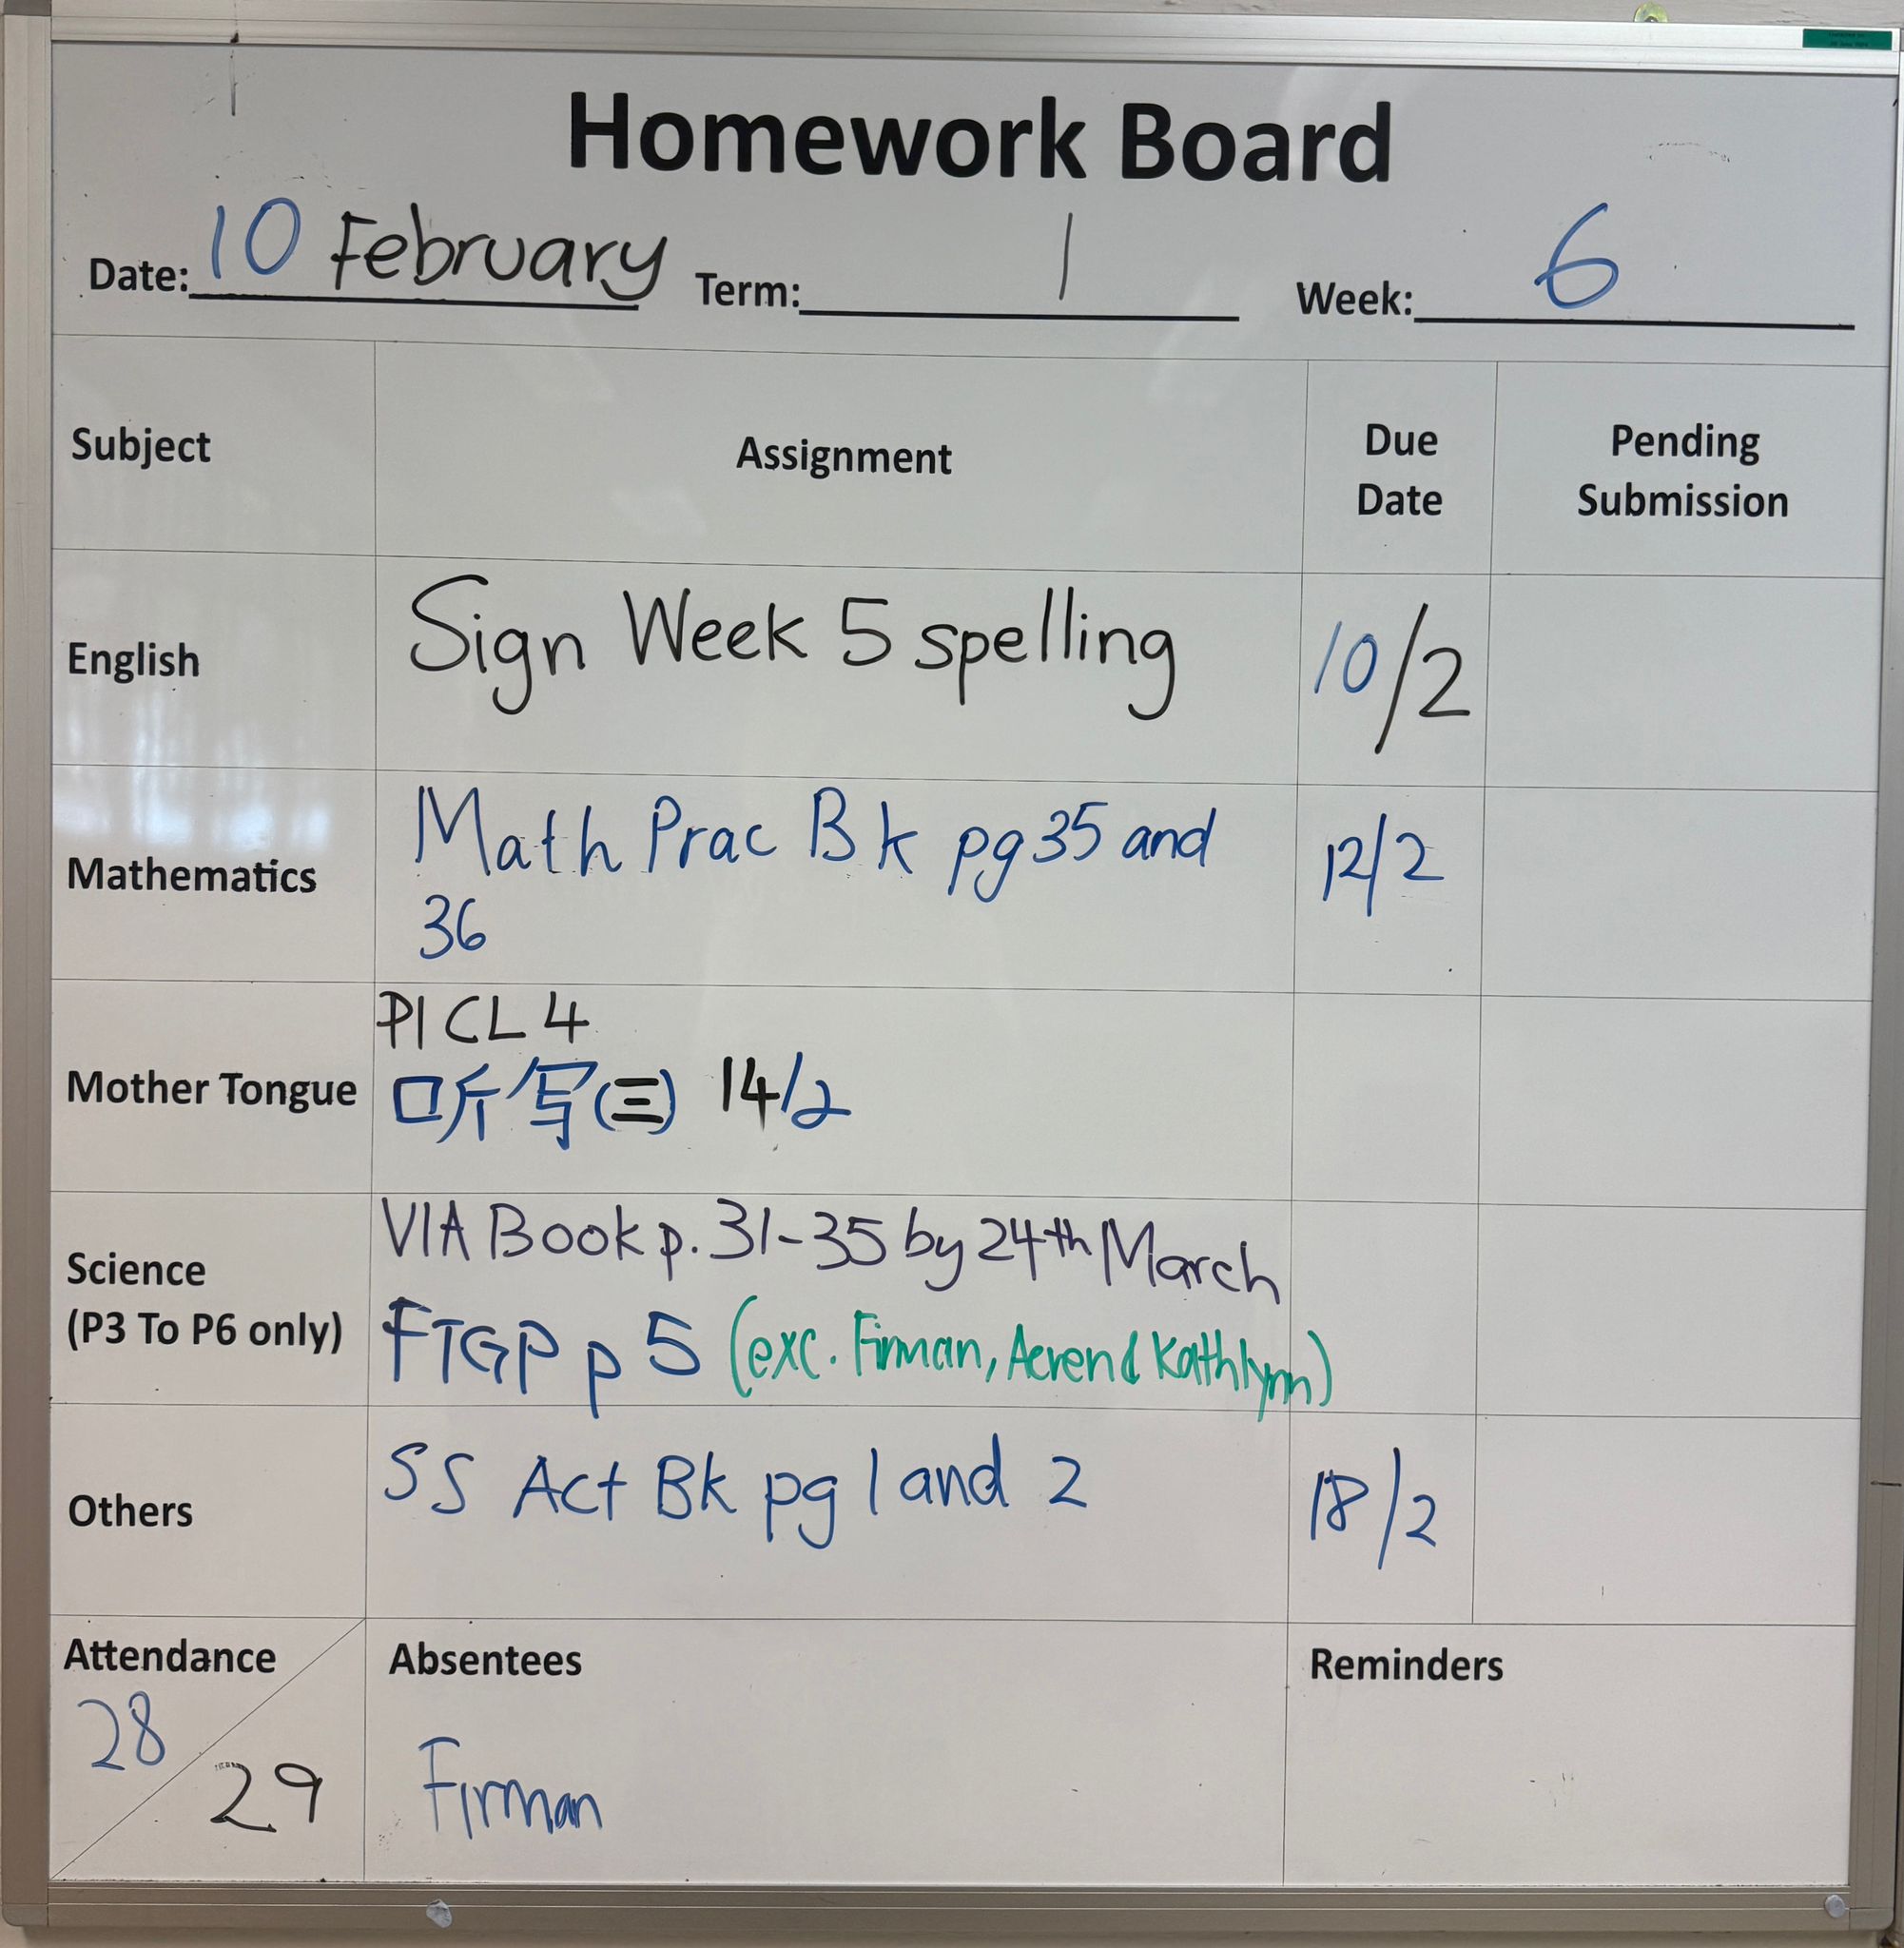 Homework Board
Date: 10 February Term: 1 Week: 6
Subject Assignment Due Date Pending Submission
English Sign Week 5 spelling 10/2
Mathematics Math Prac Bk pg 35 and 36 12/2
PI CL 4
Mother Tongue 听写(三) 14/2
VIA Book p. 31-35 by 24th March
Science
(P3 To P6 only) FTGP p 5 (exc. Firman, Aeren d Kathlynn)
Others SS Act Bk pg 1 and 2 18/2
Attendance Absentees Reminders
28
29 Firman